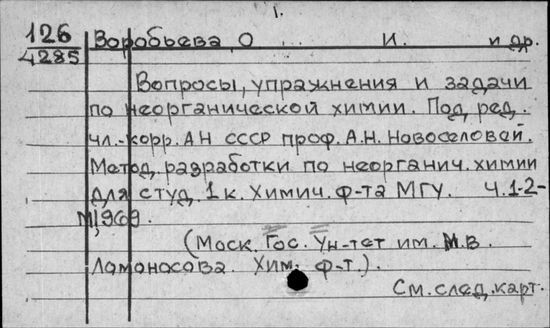 1.
126
4285
Воробьева, О . . . И. и др.
Вопросы, упражнения и задачи
по неорганической химии. Под ред.
чл.-корр. АН СССР проф. А.Н. Новоселовой.
Метод. разработки по неорганич. химии
для студ. 1 к. Химич. ф-та МГУ. Ч.1-2-
М., 1969.
(Моск. Гос. Ун-тет им. М.В.
Ломоносова. Хим. ф-т.).
См. след. карт.